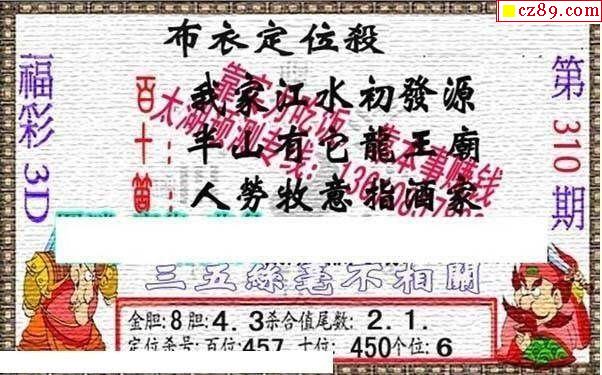 cz89.com
布衣定位殺
福彩3D
第310期
百 我家江水初發源
十 半山有它龍王廟
人勞牧意指酒家
太湖预测专线：
三五絲毫不相關
金胆:8胆:4.3杀合值尾数:2.1.
定位杀号:百位:457 十位:450个位:6